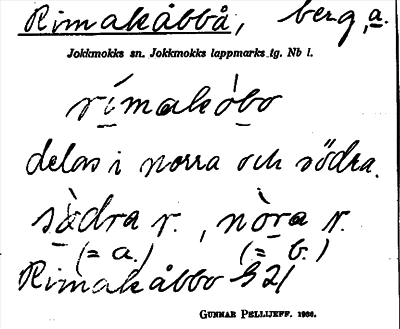 Rimakåbbå, berg, a.
Jokkmokks sn. Jokkmokks lappmarks tg. Nb l.
rímakóbo
delas i norra och södra.
sòdra r., nòra r.
(= a.) (= b.)
Rimakåbbo G 21
GUNNAR PELLIJEFF. 1966.